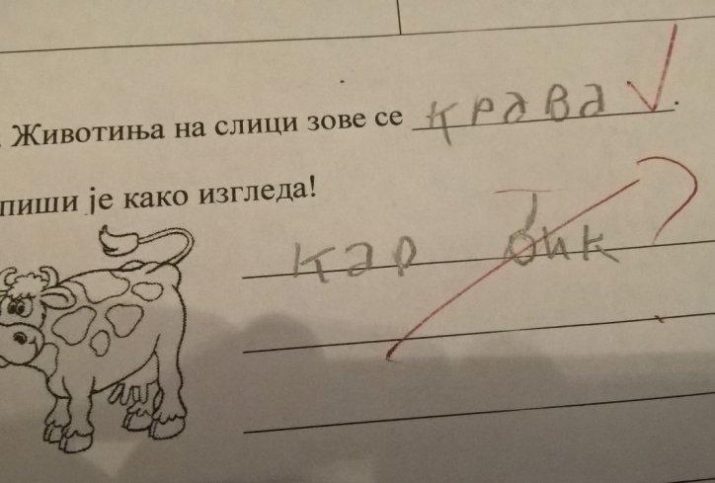 Животиња на слици зове се крава.
пиши је како изгледа!
кар бик